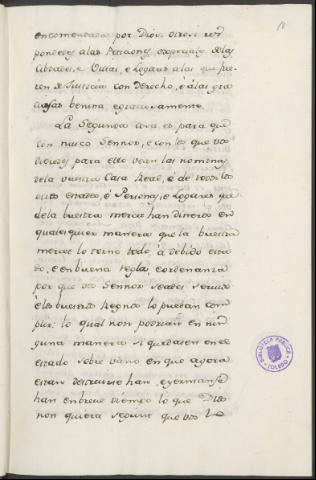 encomendadas por Dios, otrosi res
ponderes a las Peticiones, especiales de las
Cibdades, e Villas, e Logares a las que fue
ren de Justicia con Derecho, e a las gra
ciosas benina, egraciosamente.
La Segunda cosa es para que
con nusco Sennor, e con los que vos
dieredes para ello vean las nominas
dela vuestra Casa Real, e de todos los
otros Estados, e Personas, e Logares que
dela buestra merced han dineros en
qualesquier maneras que la buestra
merced lo torne todo a debido esta
do, e en buena regla, e ordenanza
por que vos Sennor seades servido
e los buestros Regnos lo puedan com
plir: lo qual non podrian en nin
guna manera si quedasen en el
estado sobre dicho en que agora
estan e se han
han en breve tiempo lo que Dios
non quiera segunt que vos lo
BIBLIOTECA PUBLICA
TOLEDO